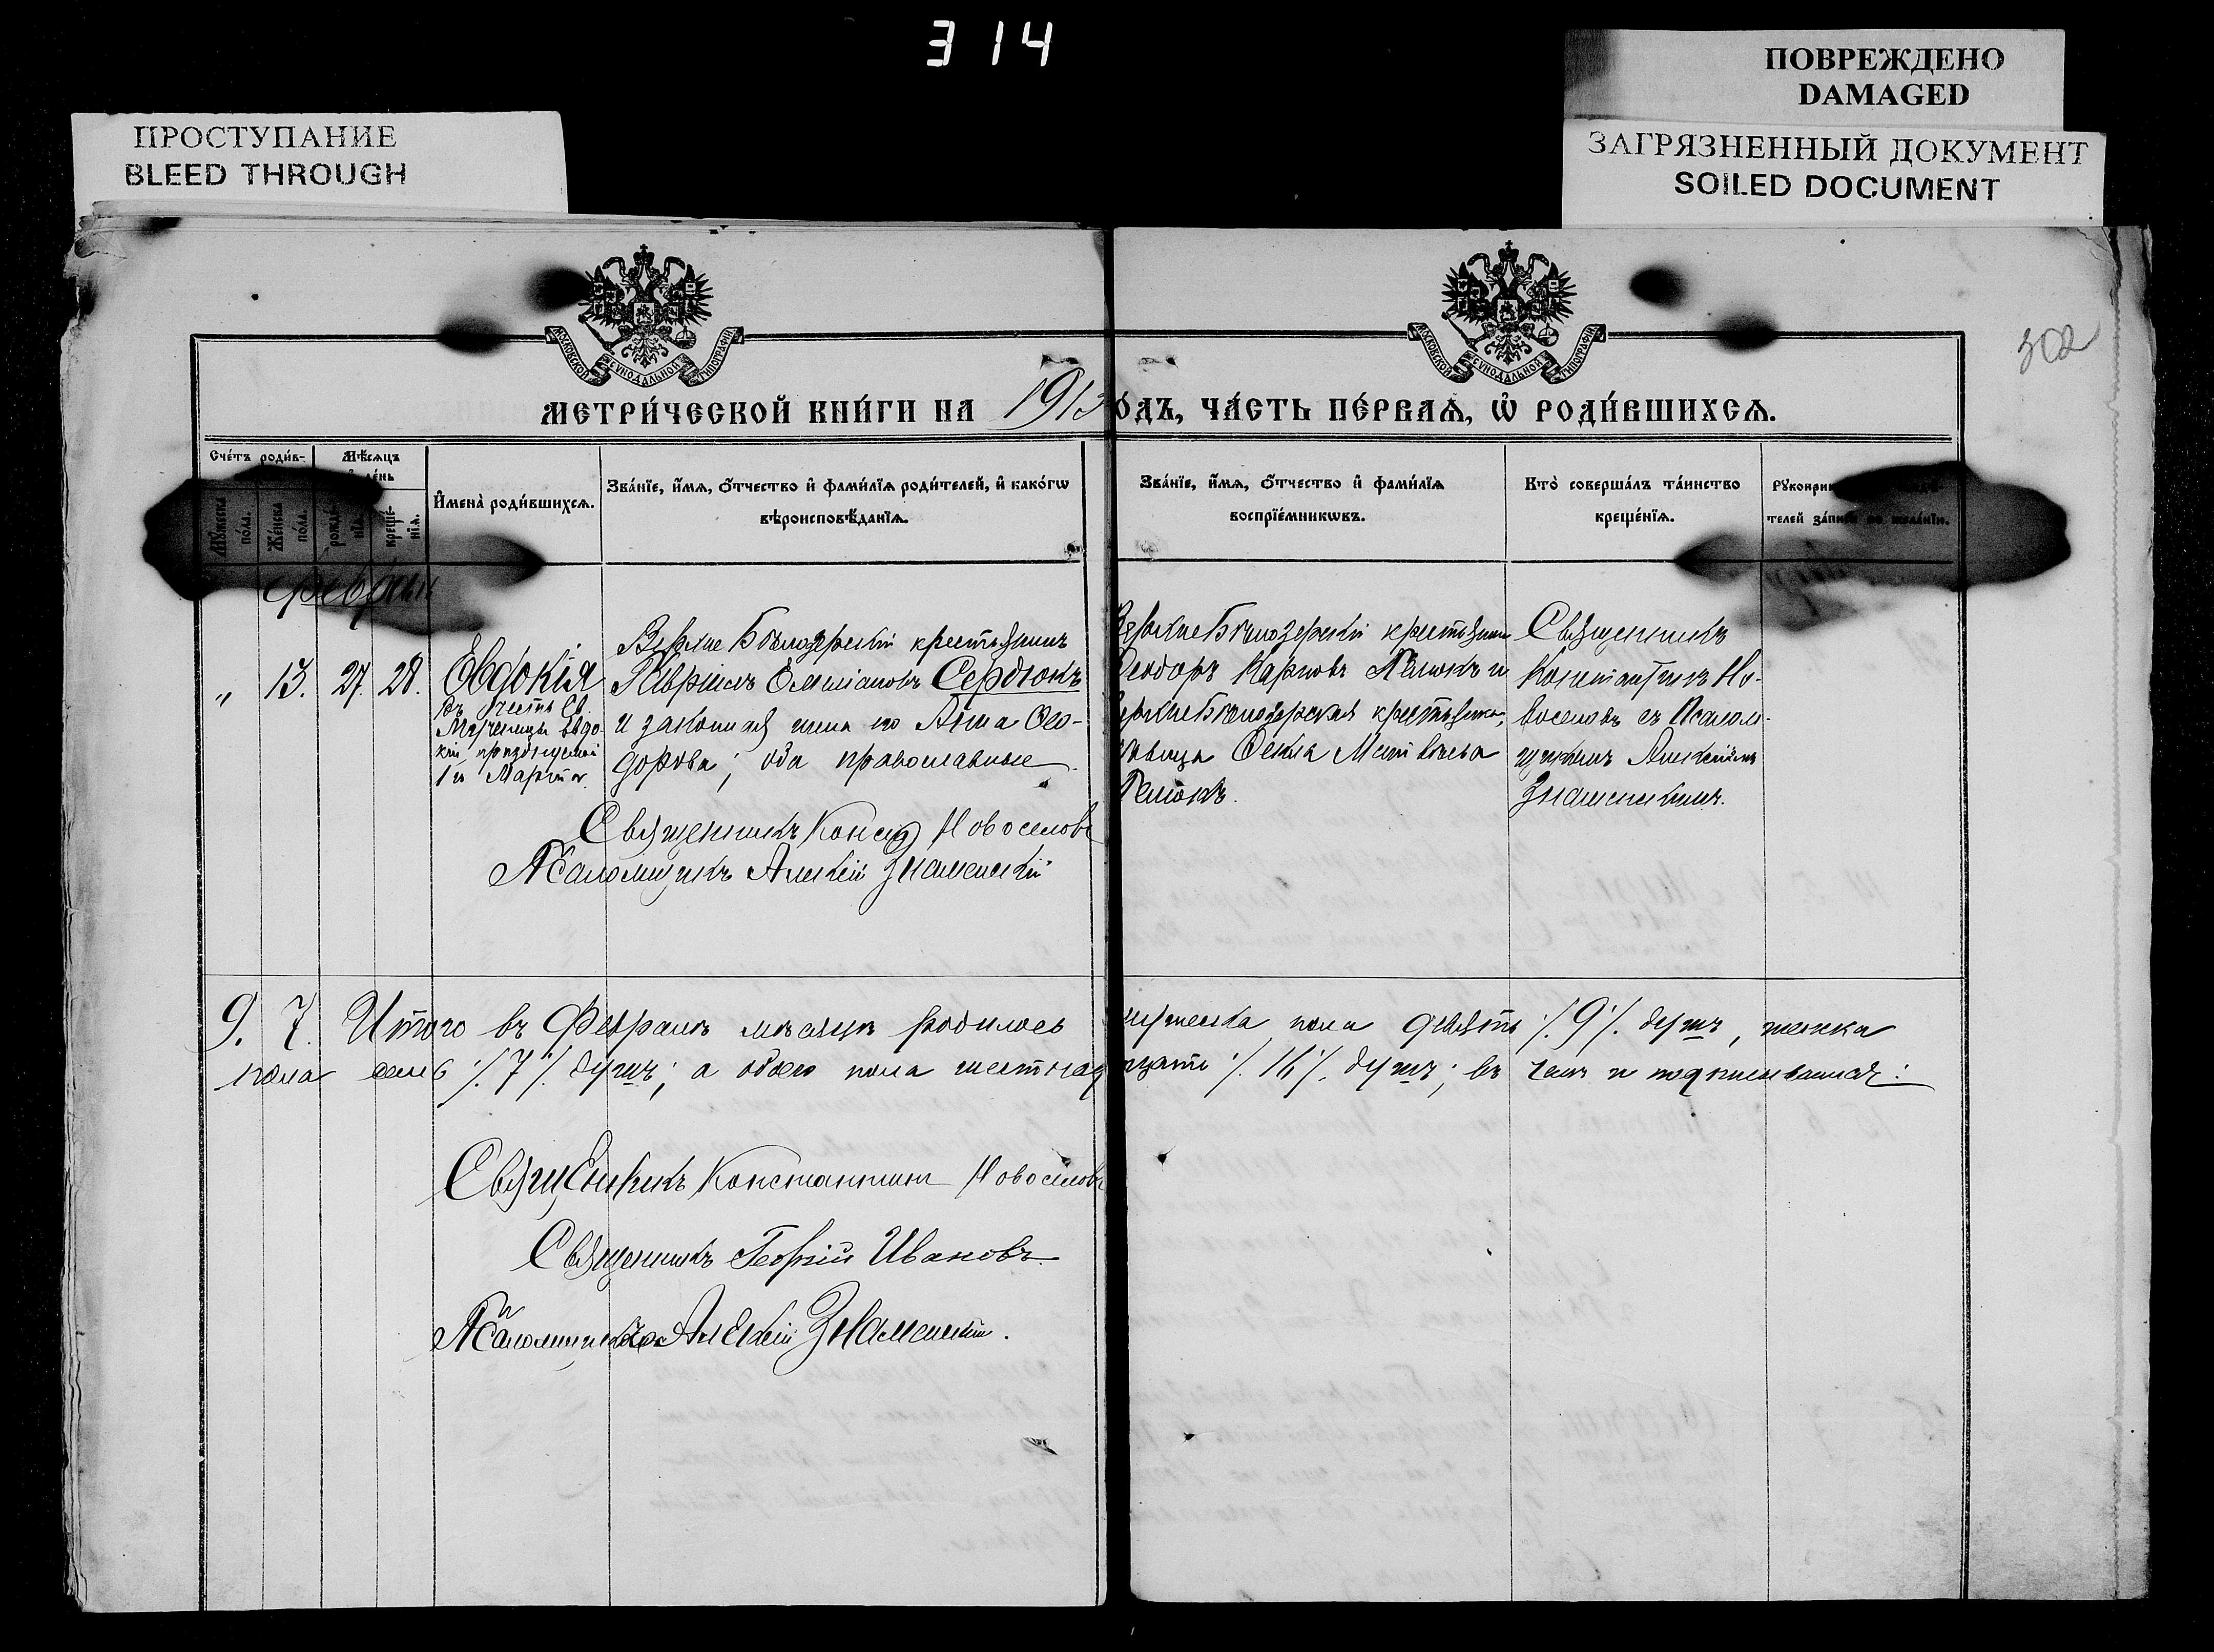 314
ПОВРЕЖДЕНО
DAMAGED
ПРОСТУПАНИЕ
BLEED THROUGH
ЗАГРЯЗНЕННЫЙ ДОКУМЕНТ
SOILED DOCUMENT
МОСКОВСКОЙ СѴНОДАЛЬНОЙ ТИПОГРАФІИ
МОСКОВСКОЙ СѴНОДАЛЬНОЙ ТИПОГРАФІИ
302
МЕТРИ́ЧЕСКОЙ КНИ́ГИ НА 1913 ГО́ДЪ, ЧА́СТЬ ПЕ́РВАѦ, Ѡ РОДИ́ВШИХСѦ.
Сче́тъ роди́в-
Мѣ́сѧцъ
де́нь
Мꙋ́жеска по́ла.
Же́нска по́ла.
рожде́-нїѧ.
креще́-нїѧ.
И҆мена̀ роди́вшихсѧ.
Зва́нїе, и҆́мѧ, ѻ҆́тчество и҆ фами́лїѧ роди́телей, и҆ како́гѡ
вѣроисповѣ́данїѧ.
Зва́нїе, и҆́мѧ, ѻ҆́тчество и҆ фами́лїѧ
воспрїе́мникѡвъ.
Кто̀ соверша́лъ та́инство
креще́нїѧ.
телей за́писи по жела́нїю.
Февраль
" 13. 27. 28. Евдокія
въ честь Св.
Мученицы Евдо-
кіи, празднуемой
1го Марта.
Верхне Бѣлозерскій крестьянинъ
Гавріилъ Емиліановъ Сердюкъ
и законная жена его Анна Ѳео-
дорова; оба православные.
Верхне Бѣлозерскій крестьянинъ
Ѳеодоръ Карповъ и
Верхне Бѣлозерская крестьянка,
Ѳекла Матвѣева
Священникъ
Константинъ Но-
воселовъ съ Псалом-
щикомъ Алексіемъ
Знаменскимъ.
Священникъ Конст Новоселовъ
Псаломщикъ Алексій Знаменскій
9. 7. Итого въ Февралѣ мѣсяцѣ родилось мужеска пола девять ./.9./. душъ, женска
пола семь ./.7./. душъ; а обоего пола шестнадцать ./.16./. душъ; въ чемъ и подписываемся:
Священникъ Константинъ Новоселовъ
Священникъ Георгій Ивановъ
Псаломщикъ Алексій Знаменскій.